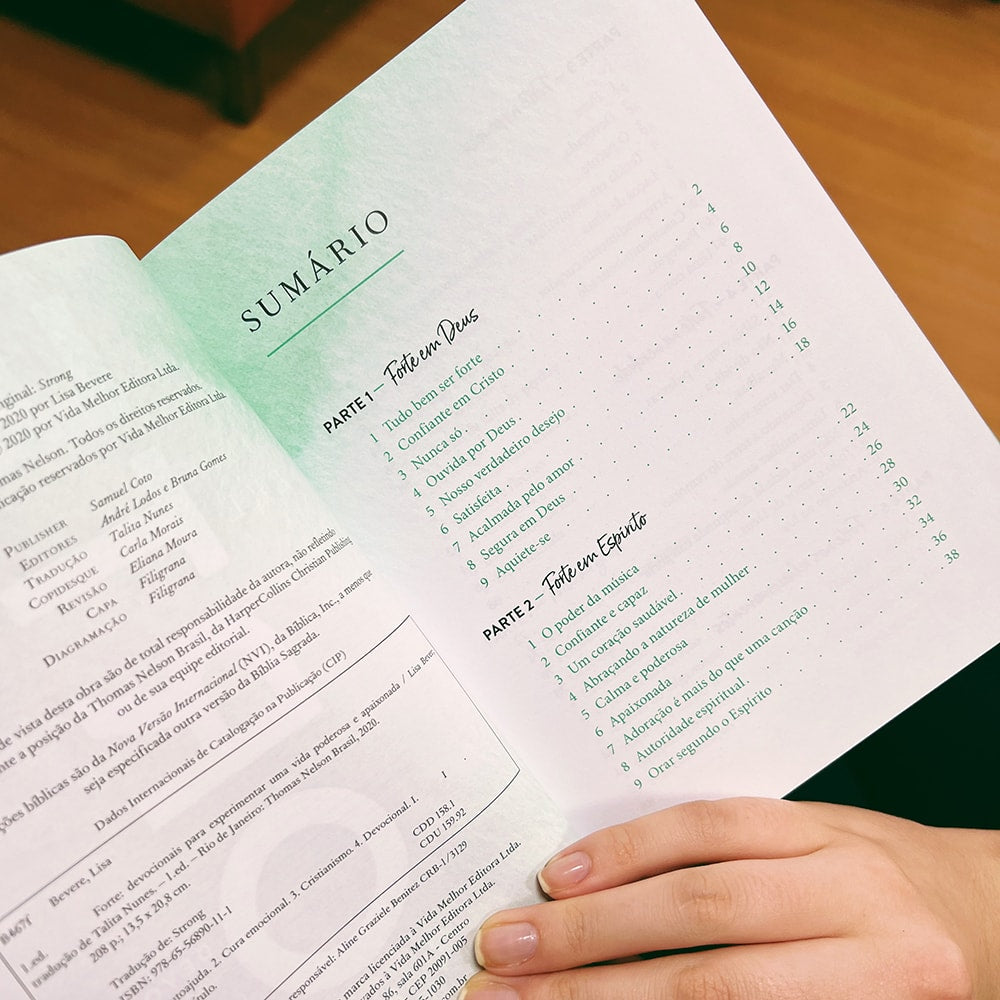 iginal: Strong
2020 por Lisa Bevere
2020 por Vida Melhor Editora Ltda.
mas Nelson. Todos os direitos reservados.
cação reservados por Vida Melhor Editora Ltda.
PUBLISHER Samuel Coto
EDITORES André Lodos e Bruna Gomes
TRADUÇÃO Talita Nunes
COPIDESQUE Carla Morais
REVISÃO Eliana Moura
CAPA Filigrana
DIAGRAMAÇÃO Filigrana
de vista desta obra são de total responsabilidade da autora, não refletindo
nte a posição da Thomas Nelson Brasil, da HarperCollins Christian Publishing
ou de sua equipe editorial.
ções bíblicas são da Nova Versão Internacional (NVI), da Bíblica, Inc., a menos que
seja especificada outra versão da Bíblia Sagrada.
Dados Internacionais de Catalogação na Publicação (CIP)
B467f Bevere, Lisa
1.ed. Forte: devocionais para experimentar uma vida poderosa e apaixonada / Lisa Bevere
tradução de Talita Nunes. – 1.ed. – Rio de Janeiro: Thomas Nelson Brasil, 2020.
208 p.; 13,5 x 20,8 cm.
Tradução de: Strong
ISBN: 978-65-56890-11-1
toajuda. 2. Cura emocional. 3. Cristianismo. 4. Devocional. I.
tulo.
CDD 158.1
CDU 159.92
responsável: Aline Graziele Benitez CRB-1/3129
marca licenciada à Vida Melhor Editora Ltda.
vados à Vida Melhor Editora Ltda.
86, sala 601A - Centro
CEP 20091-005
5-1030
com.br
SUMÁRIO
PARTE 1 — Forte em Deus
1 Tudo bem ser forte 2
2 Confiante em Cristo 4
3 Nunca só 6
4 Ouvida por Deus 8
5 Nosso verdadeiro desejo 10
6 Satisfeita 12
7 Acalmada pelo amor 14
8 Segura em Deus 16
9 Aquiete-se 18
PARTE 2 — Forte em Espírito
1 O poder da música 22
2 Confiante e capaz 24
3 Um coração saudável 26
4 Abraçando a natureza de mulher 28
5 Calma e poderosa 30
6 Apaixonada 32
7 Adoração é mais do que uma canção 34
8 Autoridade espiritual 36
9 Orar segundo o Espírito 38